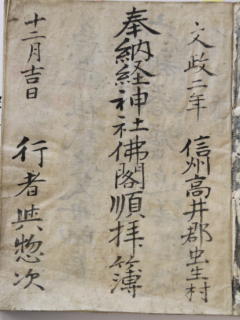 文政二年 信州高井郡虫生村
奉納経神社佛閣順拝簿
十二月吉日 行者與惣次